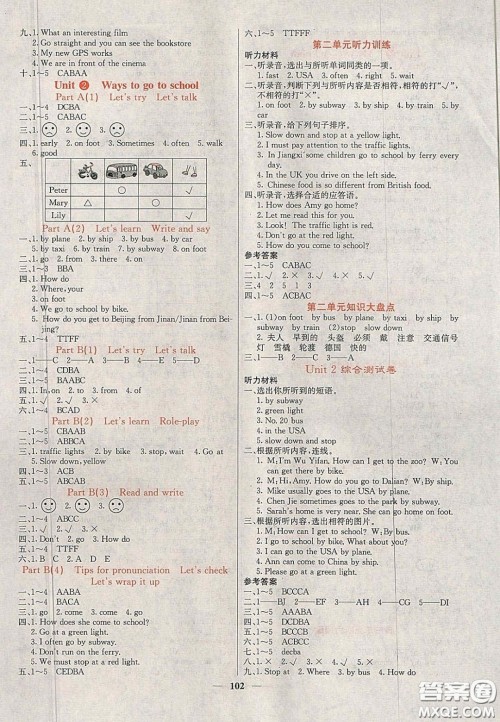 九、1. What an interesting film
2. Go straight and you can see the bookstore
3. My new GPS works
4. We are in front of the cinema
十、1~5 CABAA
Unit 2 Ways to go to school
Part A(1) Let's try Let's talk
一、1~4 DCBA
二、1~5 CABAC
四、1. early 2. on foot 3. Sometimes 4. often 5. walk
6. good
五、
Peter ○ √
Mary △ ○
Lily √
Part A(2) Let's learn Write and say
一、1. by plane 2. on foot 3. by bus 4. by taxi
5. by train 6. by subway 7. by ship
三、1~3 BBA
四、1. How do you come to school
2. on foot
3. How do you get there
4. We go to school by bike
5. How do you get to Beijing from Jinan/from Jinan to Beijing
五、1~4 TTFF
Part B(1) Let's try Let's talk
一、1——C 2——A 3——B 4——E 5——D
二、1~5 DCABB
三、1~5 BAABC
四、1. In 2. to 3. on 4. from
五、1. × 2. √ 3. × 4. √
六、1~4 BCAD
Part B(2) Let's learn Role-play
一、1~5 CBAAB
二、1~5 ABBCA
三、1. traffic lights 2. by bike 3. stop, wait 4. Go at
5. Slow down
四、1~5 ABCAB
Part B(3) Read and write
二、1~4 ABCC
三、1. √ 2. √ 3. ×
四、1. Don't 2. go 3. How do
五、1~4 TTFF
六、B C A D E
Part B(4) Tips for pronunciation Let's check
Let's wrap it up
一、1~4 AABA
二、1~4 BACA
三、1. How does she come to school?
2. Go at a green light.
3. I often go by subway.
4. Don't run on the ferry.
5. We must stop at a red light.
五、1~5 CEDBA
六、1~5 TTFFF
第二单元听力训练
听力材料
一、听录音,选出与所听单词同类的一项。
1. fast 2. USA 3. often 4. wait 5. by ship
二、听录音,判断下列与所听内容是否相符,相符的打“√”,不相符的打“×”。
1. on foot 2. by subway 3. by ship 4. by train 5. by car
三、听录音,给下列句子排序。
1. Slow down and stop at a yellow light.
2. I must pay attention to the traffic lights.
3. In Jiangxi some children go to school by ferry every day.
4. In the UK you drive on the left side.
5. Chinese food is so different from British food.
四、听录音,选择合适的应答语。
1. How does Amy go home?
2. Let me read this for you.
3. Look! The traffic light is red.
4. Don't go at the red light.
5. How do you come to school?
参考答案
一、1~5 CABAC
四、1~5 ACBAC
第二单元知识大盘点
一、(1)on foot by bus by plane by taxi by ship by subway by train (2)stop slow down
二、夫人 早到的 头盔 必须 戴 注意 交通信号灯 雪橇 轮渡 德国 快的
三、1——C 2——A 3——B
Unit 2 综合测试卷
听力材料
一、选出你所听到的短语。
1. by subway
2. green light
3. No. 20 bus
4. in the USA
5. slow down and stop
二、根据所听内容,连线。
1. M: I'm Wu Yifan. How can I get to the zoo? W: You can get there by bike.
2. M: Hi, Amy. How do you go to Dalian? W: By ship.
3. Mike usually goes to the USA by plane.
4. Chen Jie sometimes goes to the park by subway.
5. Sarah's home is very near. She can go home on foot.
三、根据所听内容,选出相符的图片。
1. M: How do you go to school? W: By bus.
2. I go to school by bike.
3. They go to the USA by plane.
4. Stop at a red light.
5. Please go at a green light.
参考答案
一、1~5 BCCCA
二、1——BJ 2——DF 3——EG 4——AI 5——CH
三、1~5 DACEB
四、1~5 BCBBC
五、1~5 ACABC
七、1~5 decba
八、1. √ 2. × 3. √ 4. √ 5. √
九、1. Stop at 2. wait 3. How, by car 4. Go at
102
答案圈
MXQE.COM